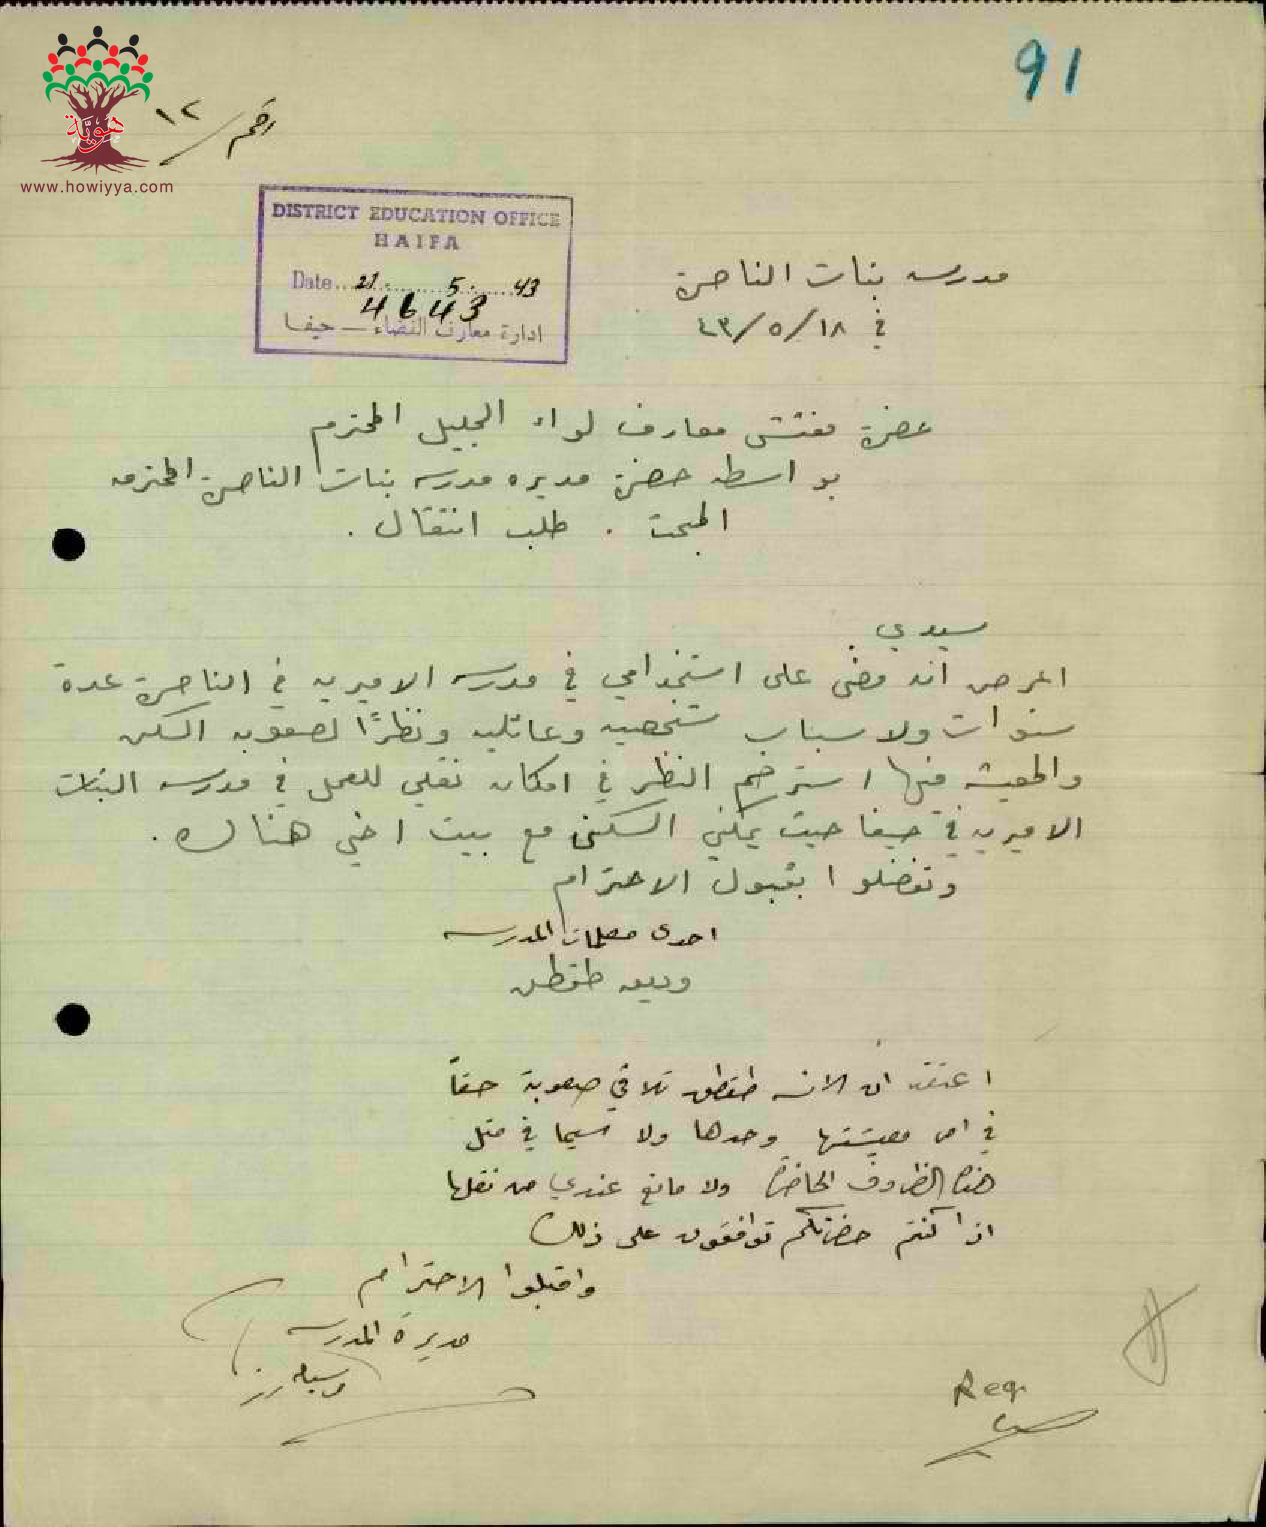 91
رقم / ١٢
هويّة
www.howiyya.com
DISTRICT EDUCATION OFFICE
HAIFA
Date 21. 5. 43
4643
ادارة معارف القضاء — حيفا
مدرسه بنات الناصرة
في ١٨/٥/٤٣
حضرة مفتش معارف لواء الجليل المحترم
بواسطه حضرة مديره مدرسه بنات الناصرة المحترمه
المبحث . طلب انتقال .
سيدي
اعرض انه مضى على استخدامي في مدرسه الاميريه في الناصرة عدة
سنوات ولاسباب شخصيه وعائليه ونظرًا لصعوبه السكن
والمعيشه فيها استرحم النظر في امكان نقلي للعمل في مدرسه البنات
الاميريه في حيفا حيث يمكنني السكنى مع بيت اخي هناك .
وتفضلوا بقبول الاحترام
احدى معلمات المدرسه
وديعه طقطق
اعتقد ان الانسه طقطق تلاقي صعوبة حقاً
في امر معيشتها وحدها ولا سيما في مثل
هذه الظروف الحاضرة ولا مانع عندي من نقلها
اذا كنتم حضرتكم توافقون على ذلك
واقبلوا الاحترام
مديرة المدرسه
Reg